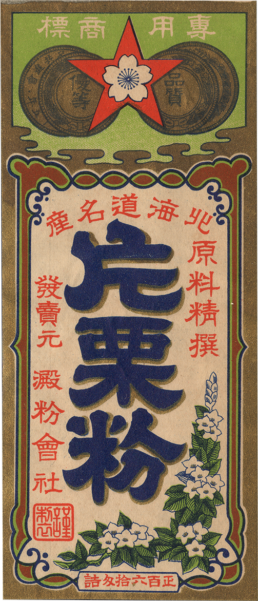 專用商標
品質
優等
北海道名産
原料精撰
片栗粉
發賣元 澱粉會社
謹製
正百六拾匁詰